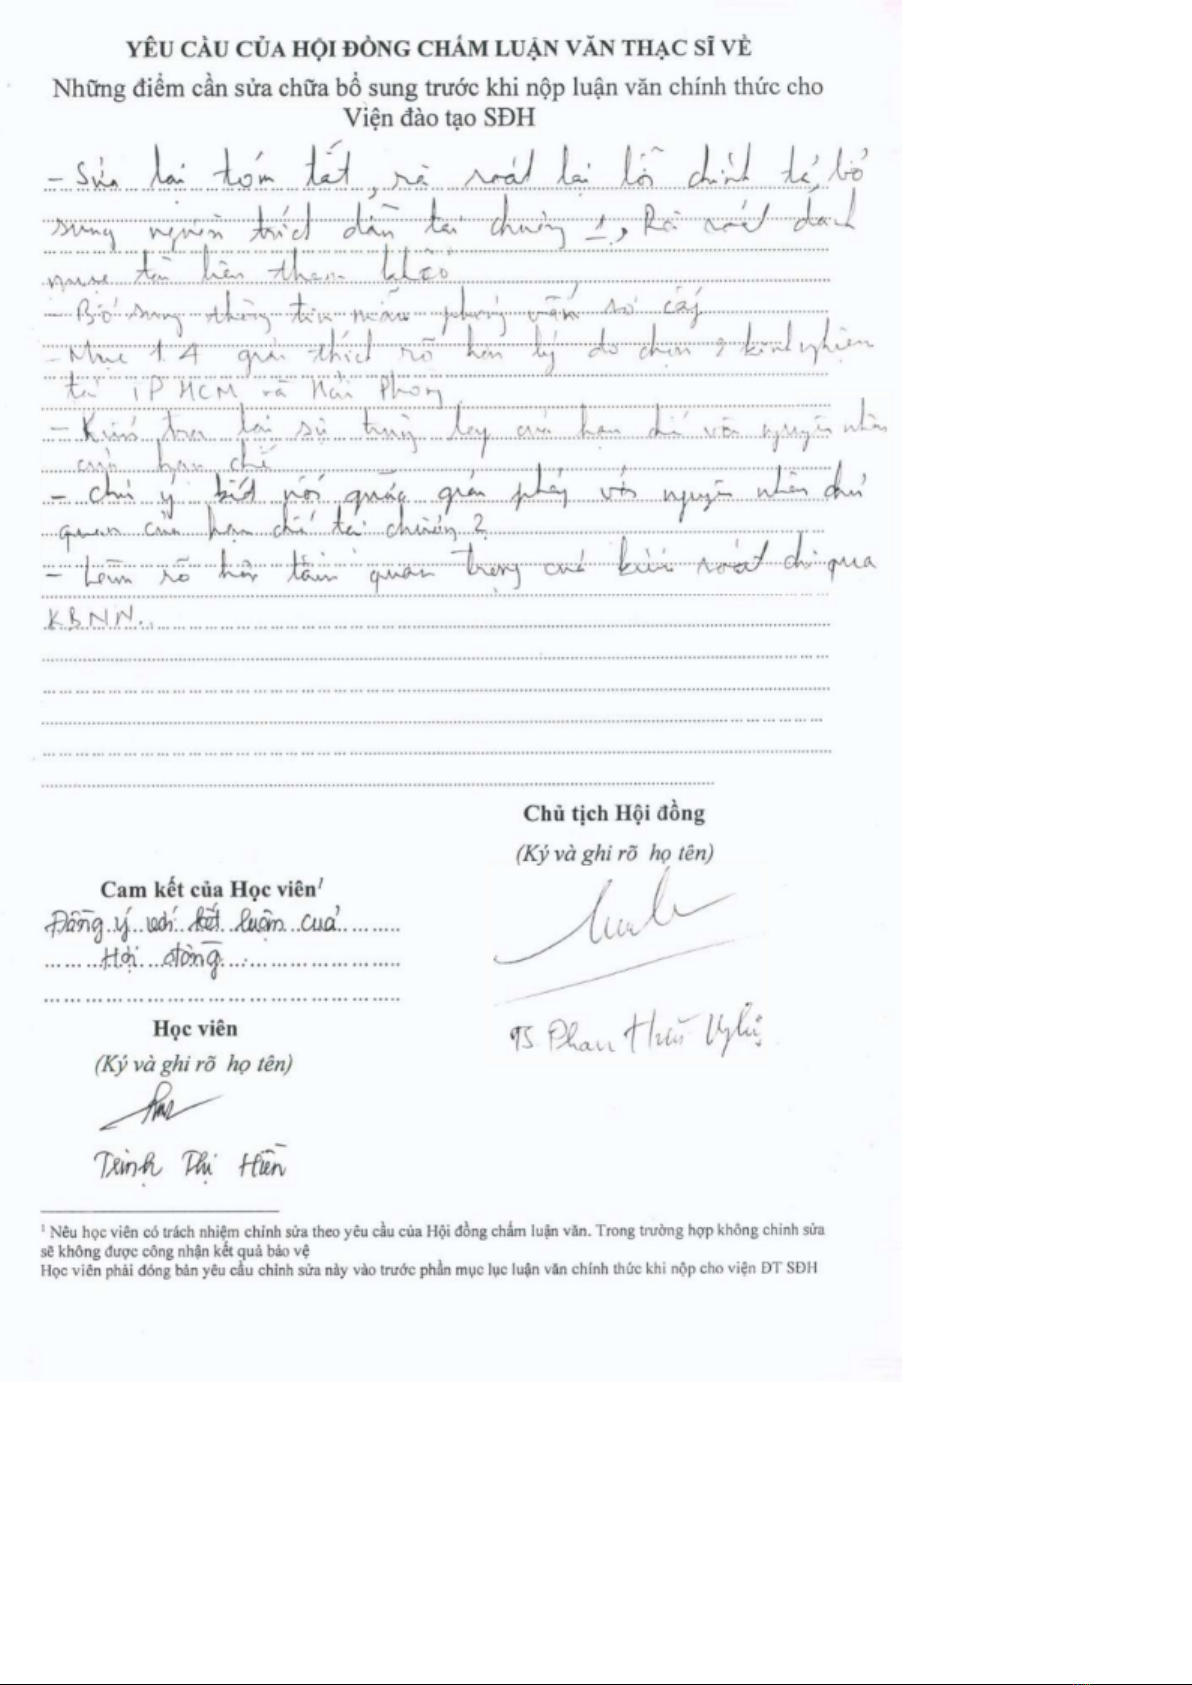 YÊU CẦU CỦA HỘI ĐỒNG CHẤM LUẬN VĂN THẠC SĨ VỀ
Những điểm cần sửa chữa bổ sung trước khi nộp luận văn chính thức cho
Viện đào tạo SĐH
- Sửa lại tóm tắt, rà soát lại lỗi chính tả, bổ
sung nguồn trích dẫn tại chương 1, Rà soát danh
mục tài liệu tham khảo
- Bổ sung thông tin mẫu phỏng vấn sơ cấp
- Mục 1.4 giải thích rõ hơn lý do chọn 2 kinh nghiệm
tại TP HCM và Hải Phòng
- Kiểm tra lại sự trùng lặp của hạn chế và nguyên nhân
của hạn chế
- Chú ý kết nối giữa giải pháp với nguyên nhân chủ
quan của hạn chế tại chương 2
- Làm rõ hơn tầm quan trọng của kiểm soát chi qua
KBNN..
Chủ tịch Hội đồng
(Ký và ghi rõ họ tên)
Cam kết của Học viên¹
Đồng ý với kết luận của
Hội đồng
Học viên
(Ký và ghi rõ họ tên)
TS. Phan Hữu Nghị
Trịnh Thị Hiền
¹ Nêu học viên có trách nhiệm chỉnh sửa theo yêu cầu của Hội đồng chấm luận văn. Trong trường hợp không chỉnh sửa
sẽ không được công nhận kết quả bảo vệ
Học viên phải đóng bản yêu cầu chỉnh sửa này vào trước phần mục lục luận văn chính thức khi nộp cho viện ĐT SĐH